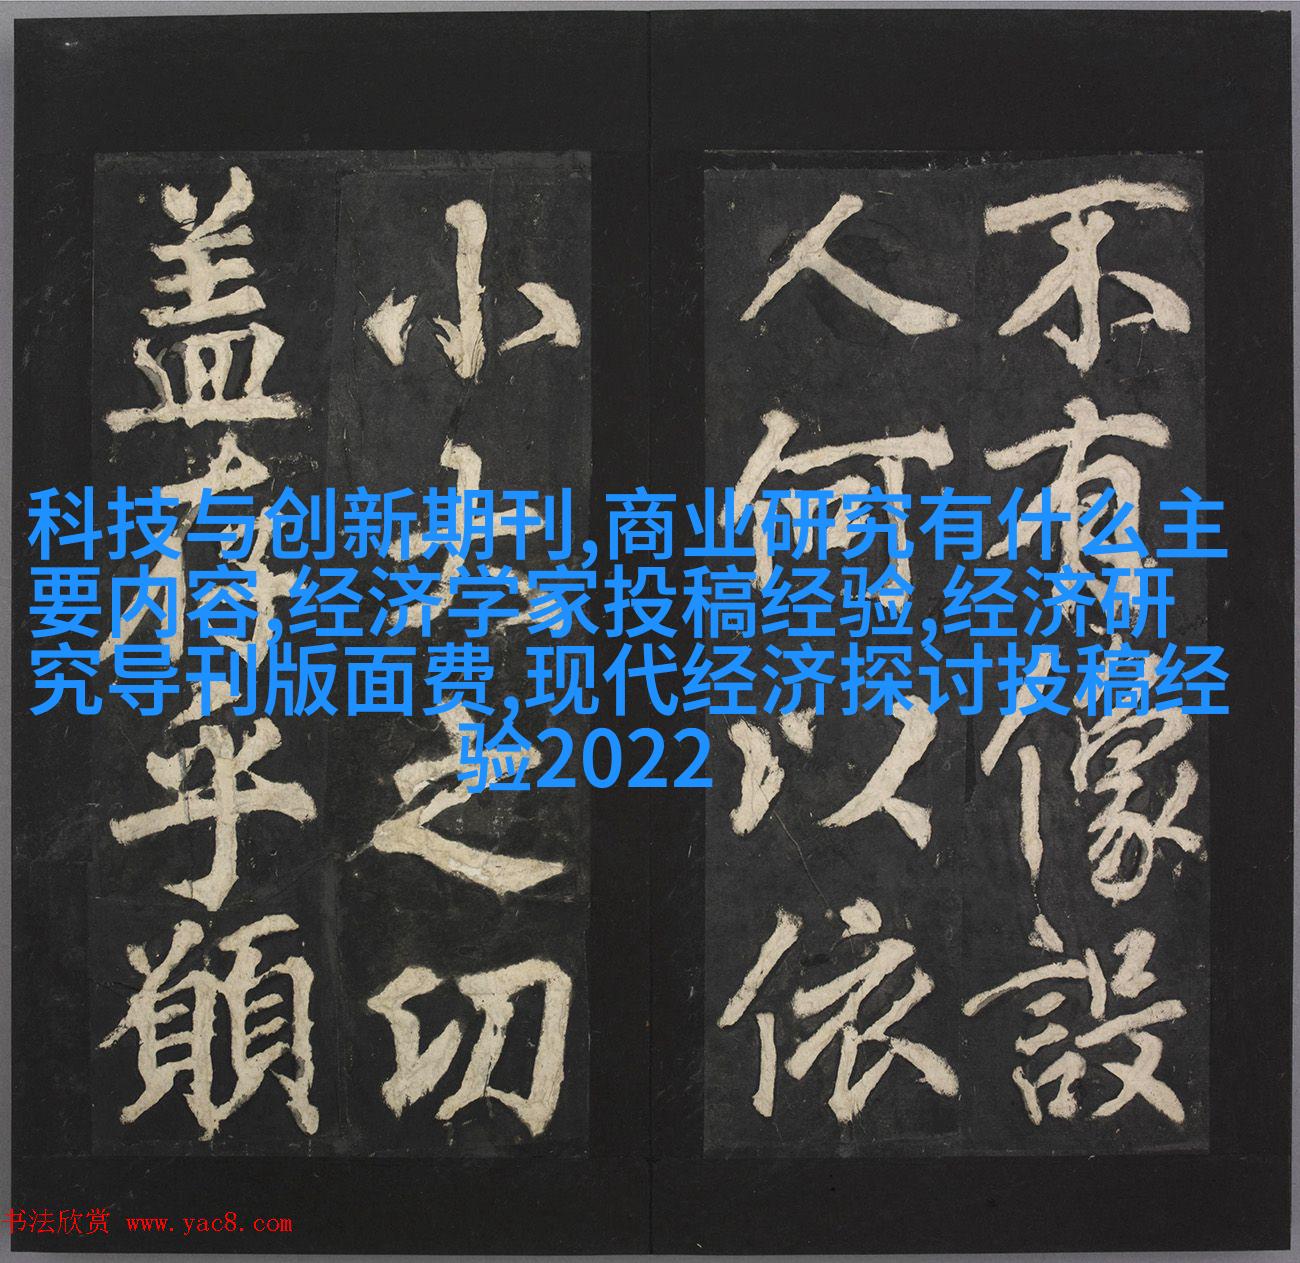 不有像設
人何以依
小大之切
盖存乎願
科技与创新期刊,商业研究有什么主
要内容,经济学家投稿经验,经济研
究导刊版面费,现代经济探讨投稿经
验2022
书法欣赏 www.yac8.com